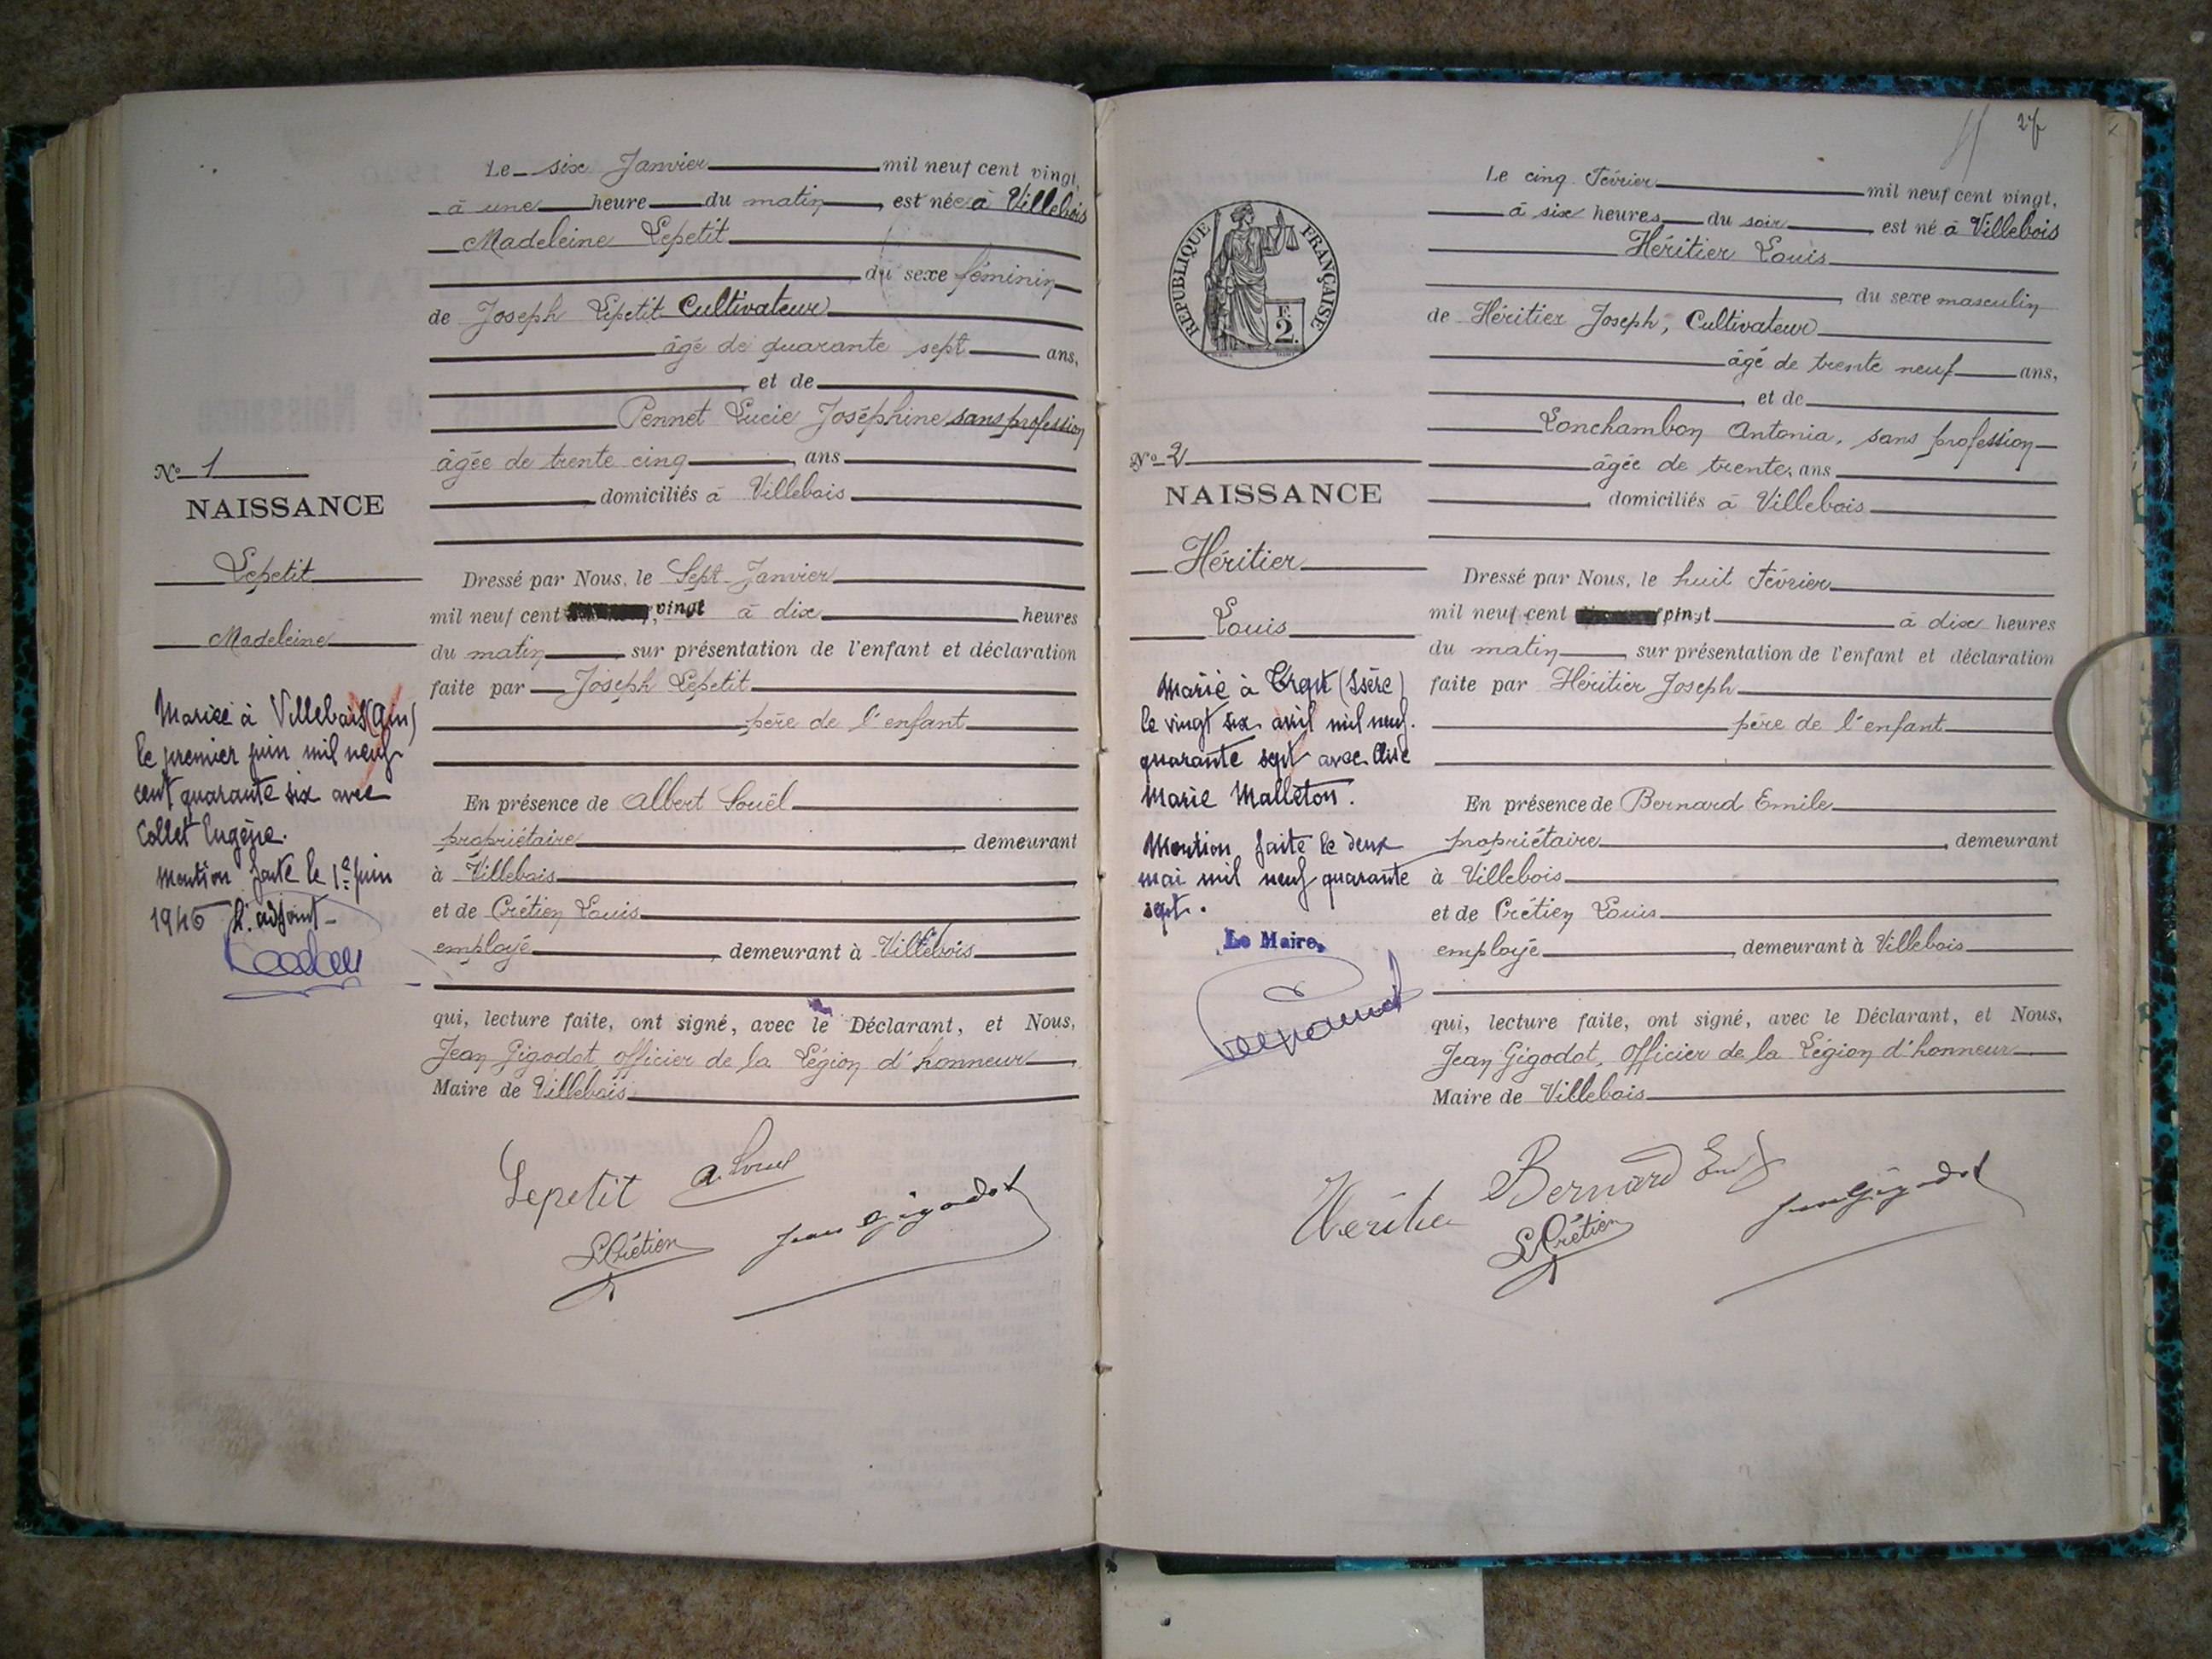 Le six Janvier mil neuf cent vingt,
à une heure du matin, est née à Villebois
Madeleine Lepetit
du sexe féminin
de Joseph Lepetit Cultivateur
âgé de quarante sept ans,
et de
Pennet Lucie Joséphine sans profession
âgée de trente cinq, ans
domiciliés à Villebois
N° 1
NAISSANCE
Lepetit
Madeleine
Dressé par Nous, le Sept Janvier
mil neuf cent vingt à dix heures
du matin, sur présentation de l'enfant et déclaration
faite par Joseph Lepetit
père de l'enfant
Mariée à Villebois (Ain)
le premier juin mil neuf
cent quarante six avec
Collet Eugène.
Mention faite le 1er juin
1946 L'adjoint
En présence de Albert Souël
propriétaire, demeurant
à Villebois
et de Crétien Louis
employé, demeurant à Villebois
qui, lecture faite, ont signé, avec le Déclarant, et Nous,
Jean Gigodot, officier de la Légion d'honneur
Maire de Villebois
Lepetit
L Crétien
Jean Gigodot
Le cinq Février mil neuf cent vingt,
à six heures du soir, est né à Villebois
Héritier Louis
, du sexe masculin
de Héritier Joseph, Cultivateur
âgé de trente neuf ans,
, et de
Lonchambon Antonia, sans profession
âgée de trente, ans
, domiciliés à Villebois
REPUBLIQUE FRANÇAISE
F.
2.
N° 2
NAISSANCE
Héritier
Louis
Dressé par Nous, le huit Février
mil neuf cent vingt à dix heures
du matin, sur présentation de l'enfant et déclaration
faite par Héritier Joseph
père de l'enfant
Marié à (Isère)
le vingt six avril mil neuf.
quarante sept avec
Marie Malleton.
Mention faite le deux
mai mil neuf quarante
sept.
Le Maire,
En présence de Bernard Emile
propriétaire, demeurant
à Villebois
et de Crétien Louis
employé, demeurant à Villebois
qui, lecture faite, ont signé, avec le Déclarant, et Nous,
Jean Gigodot, Officier de la Légion d'honneur
Maire de Villebois
Bernard
L Crétien
Jean Gigodot